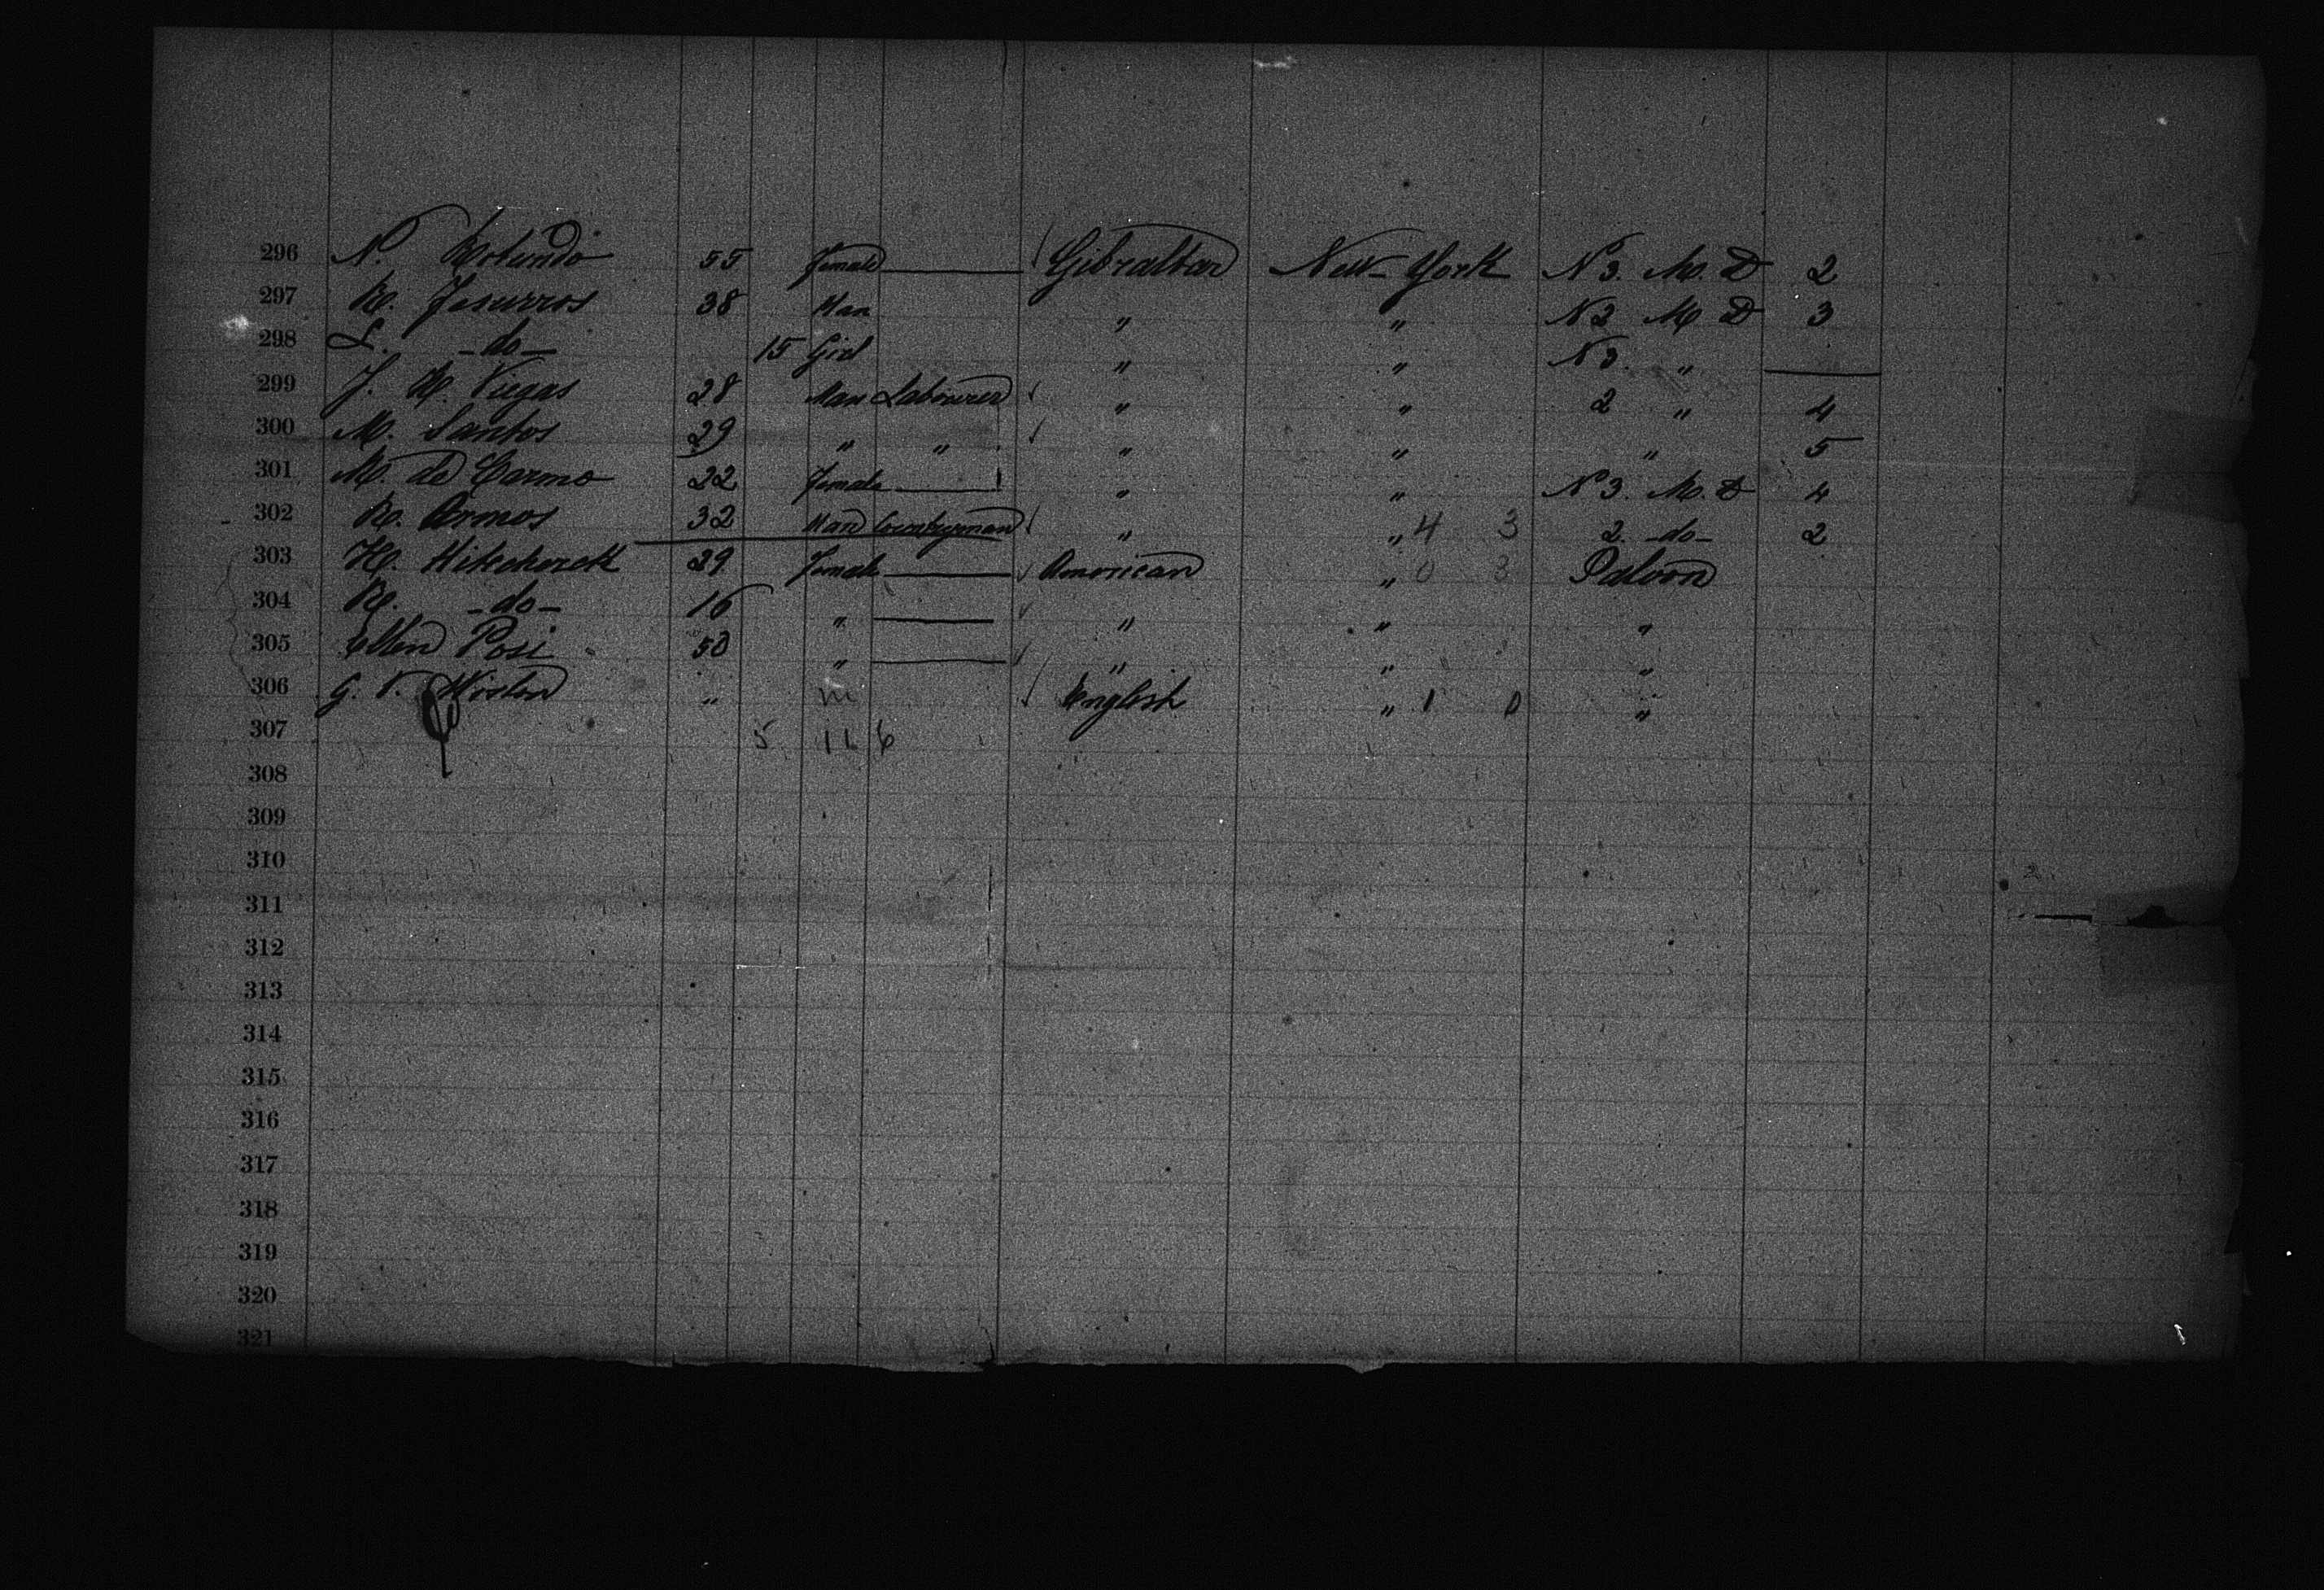 296 N. Rotundo 55 Female Gibraltar New York N 3. M. D 2
297 R. Jesurros 38 Man " " N 2 M D 3
298 L. -do- 15 Girl " " N 3. "
299 J. R. Viegas 28 Man Labourer " " 2 " 4
300 M. Santos 29 " " " " " 5
301 M. de Carmo 22 Female " " N 3. M. D 4
302 R. Armos 32 Man Countryman " " 4 3 2. -do- 2
303 H. Hitchcock 29 Female American " 0 3 Saloon
304 R. -do- 16 " " " "
305 Ellen Posi 50 " " " "
306 G. V. " m English " 1 0 "
307 5 11 6
308
309
310
311
312
313
314
315
316
317
318
319
320
321